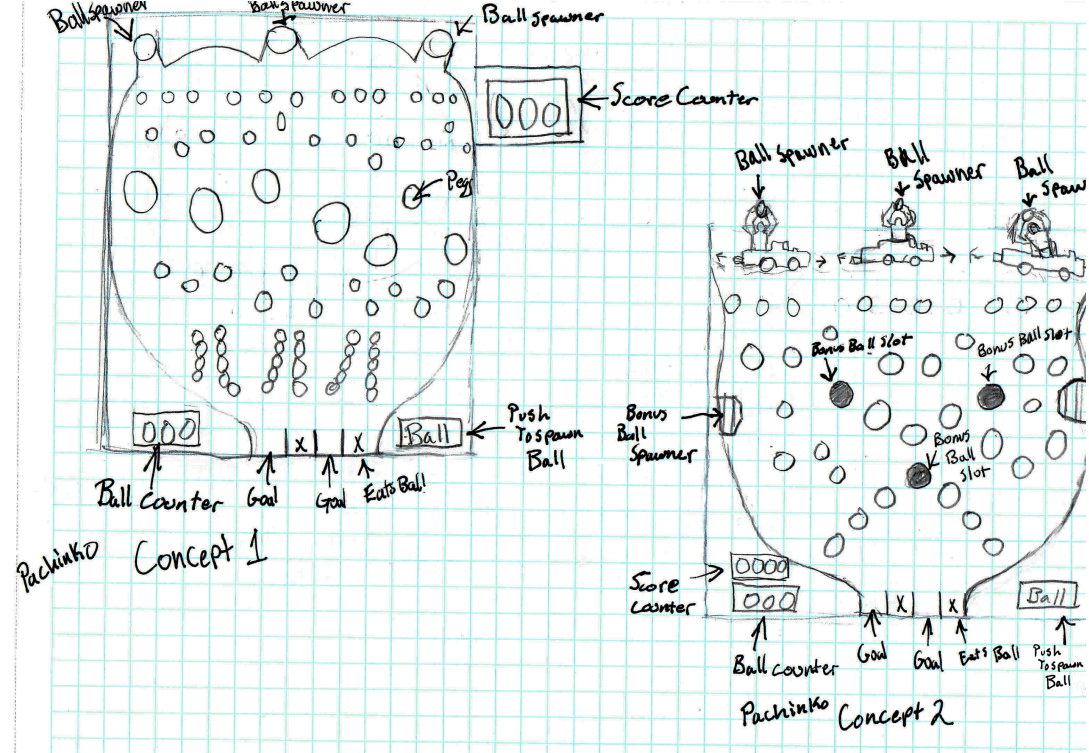 Ball spawner
Ball spawner
Ball spawner
000
Score Counter
Pegs
000
Ball
Push
To spawn
Ball
X
X
Ball Counter
Goal
Goal
Eats Ball
Pachinko Concept 1
Ball spawner
Ball
spawner
Ball
Bonus Ball slot
Bonus Ball slot
Bonus
Ball
Spawner
Bonus
Ball
slot
Score
counter
0000
000
X
X
Ball
Ball counter
Goal
Goal
Eats Ball
Push
To spawn
Ball
Pachinko Concept 2